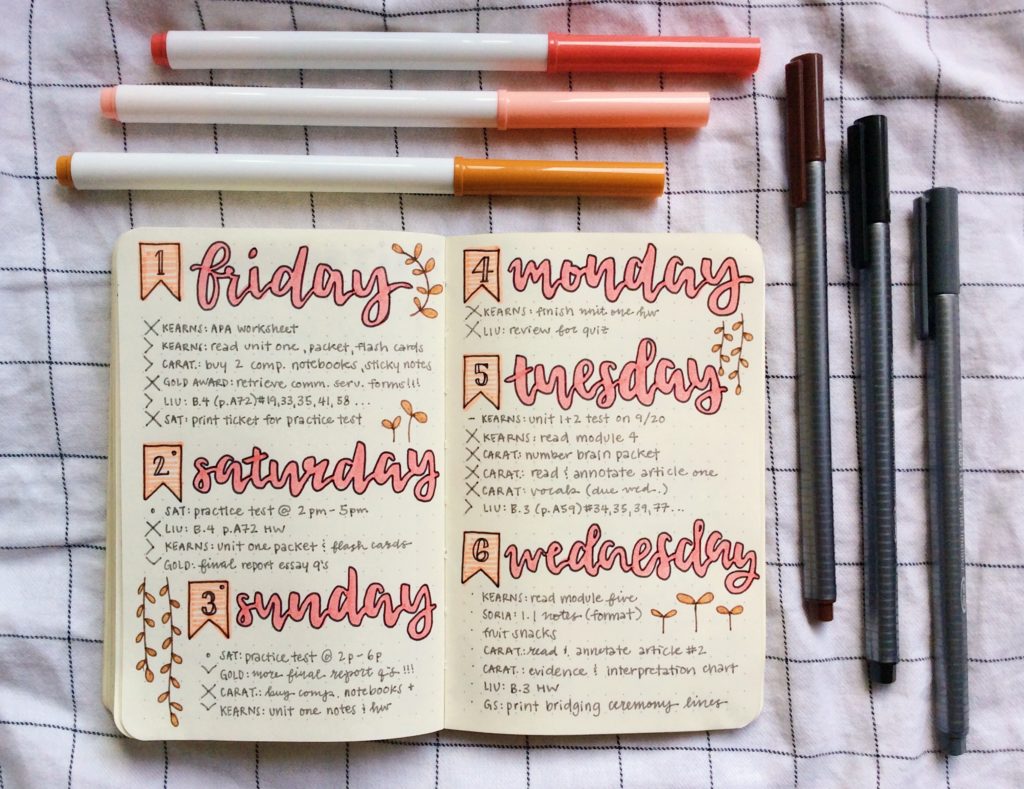 1 friday
X KEARNS: APA WORKSHEET
> KEARNS: read unit one, packet, flash cards
> CARAT: buy 2 comp. notebooks, sticky notes
X GOLD AWARD: retrieve comm. serv. forms!!!
> LIU: B.4 (p.A72)#19,33,35,41,58...
X SAT: print ticket for practice test
2 saturday
• SAT: practice test @ 2pm-5pm
X LIU: B.4 p.A72 HW
> KEARNS: unit one packet & flash cards
> GOLD: final report essay q's
3 sunday
• SAT: practice test @ 2p-6p
> GOLD: more final report q's!!!
X CARAT: buy comp. notebooks +
> KEARNS: unit one notes & hw
4 monday
X KEARNS: finish unit one hw
X LIU: review for quiz
5 tuesday
- KEARNS: unit 1+2 test on 9/20
X KEARNS: read module 4
X CARAT: number brain packet
X CARAT: read & annotate article one
X CARAT: vocab (due wed.)
> LIU: B.3 (p.A59)#34,35,39,77...
6 wednesday
· KEARNS: read module five
· SORIA: 1.1 notes (format)
· fruit snacks
· CARAT: read & annotate article #2
· CARAT: evidence & interpretation chart
· LIU: B.3 HW
· GS: print bridging ceremony lines